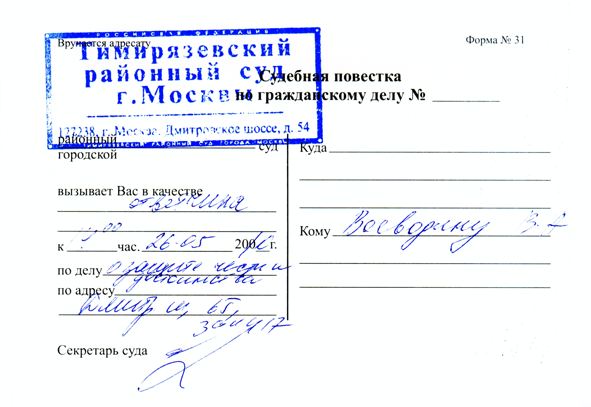 Вручается адресату
Форма № 31
РОССИЙСКАЯ ФЕДЕРАЦИЯ
Тимирязевский
районный суд
г.Москвы
127238, г. Москва, Дмитровское шоссе, д. 54
Судебная повестка
по гражданскому делу №
районный
городской
суд
вызывает Вас в качестве
ответчика
к час. 26-05 200 г.
по делу о защите чести и
достоинства
по адресу
Дмитр ш, 65,
зал 417
Секретарь суда
Куда
Кому Воеводину В.А